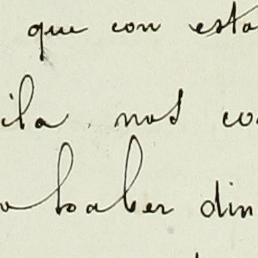 que con esta
ila. nos co
o haber din